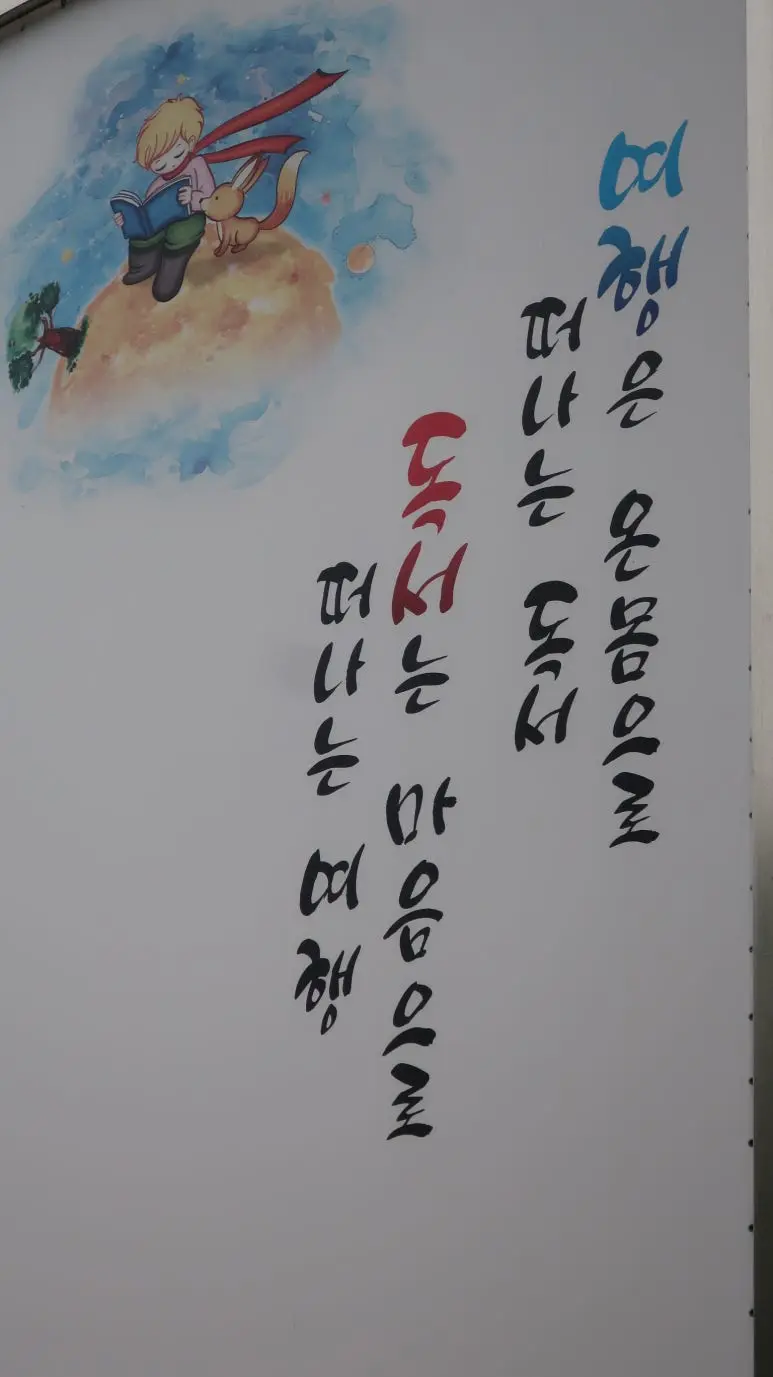 여행은 온몸으로
떠나는 독서
독서는 마음으로
떠나는 여행